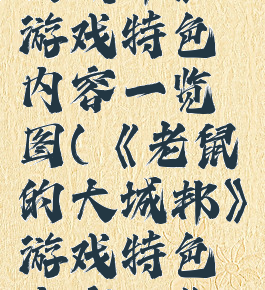 游戏特色
内容一览
图(《老鼠
的大城邦》
游戏特色